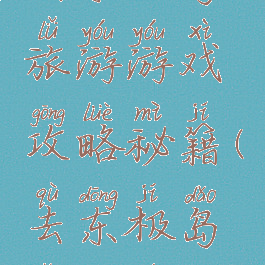 lǚ yóu yóu xì
旅游游戏
gōng lüè mì jí
攻略秘籍(
qù dōng jí dǎo
去东极岛